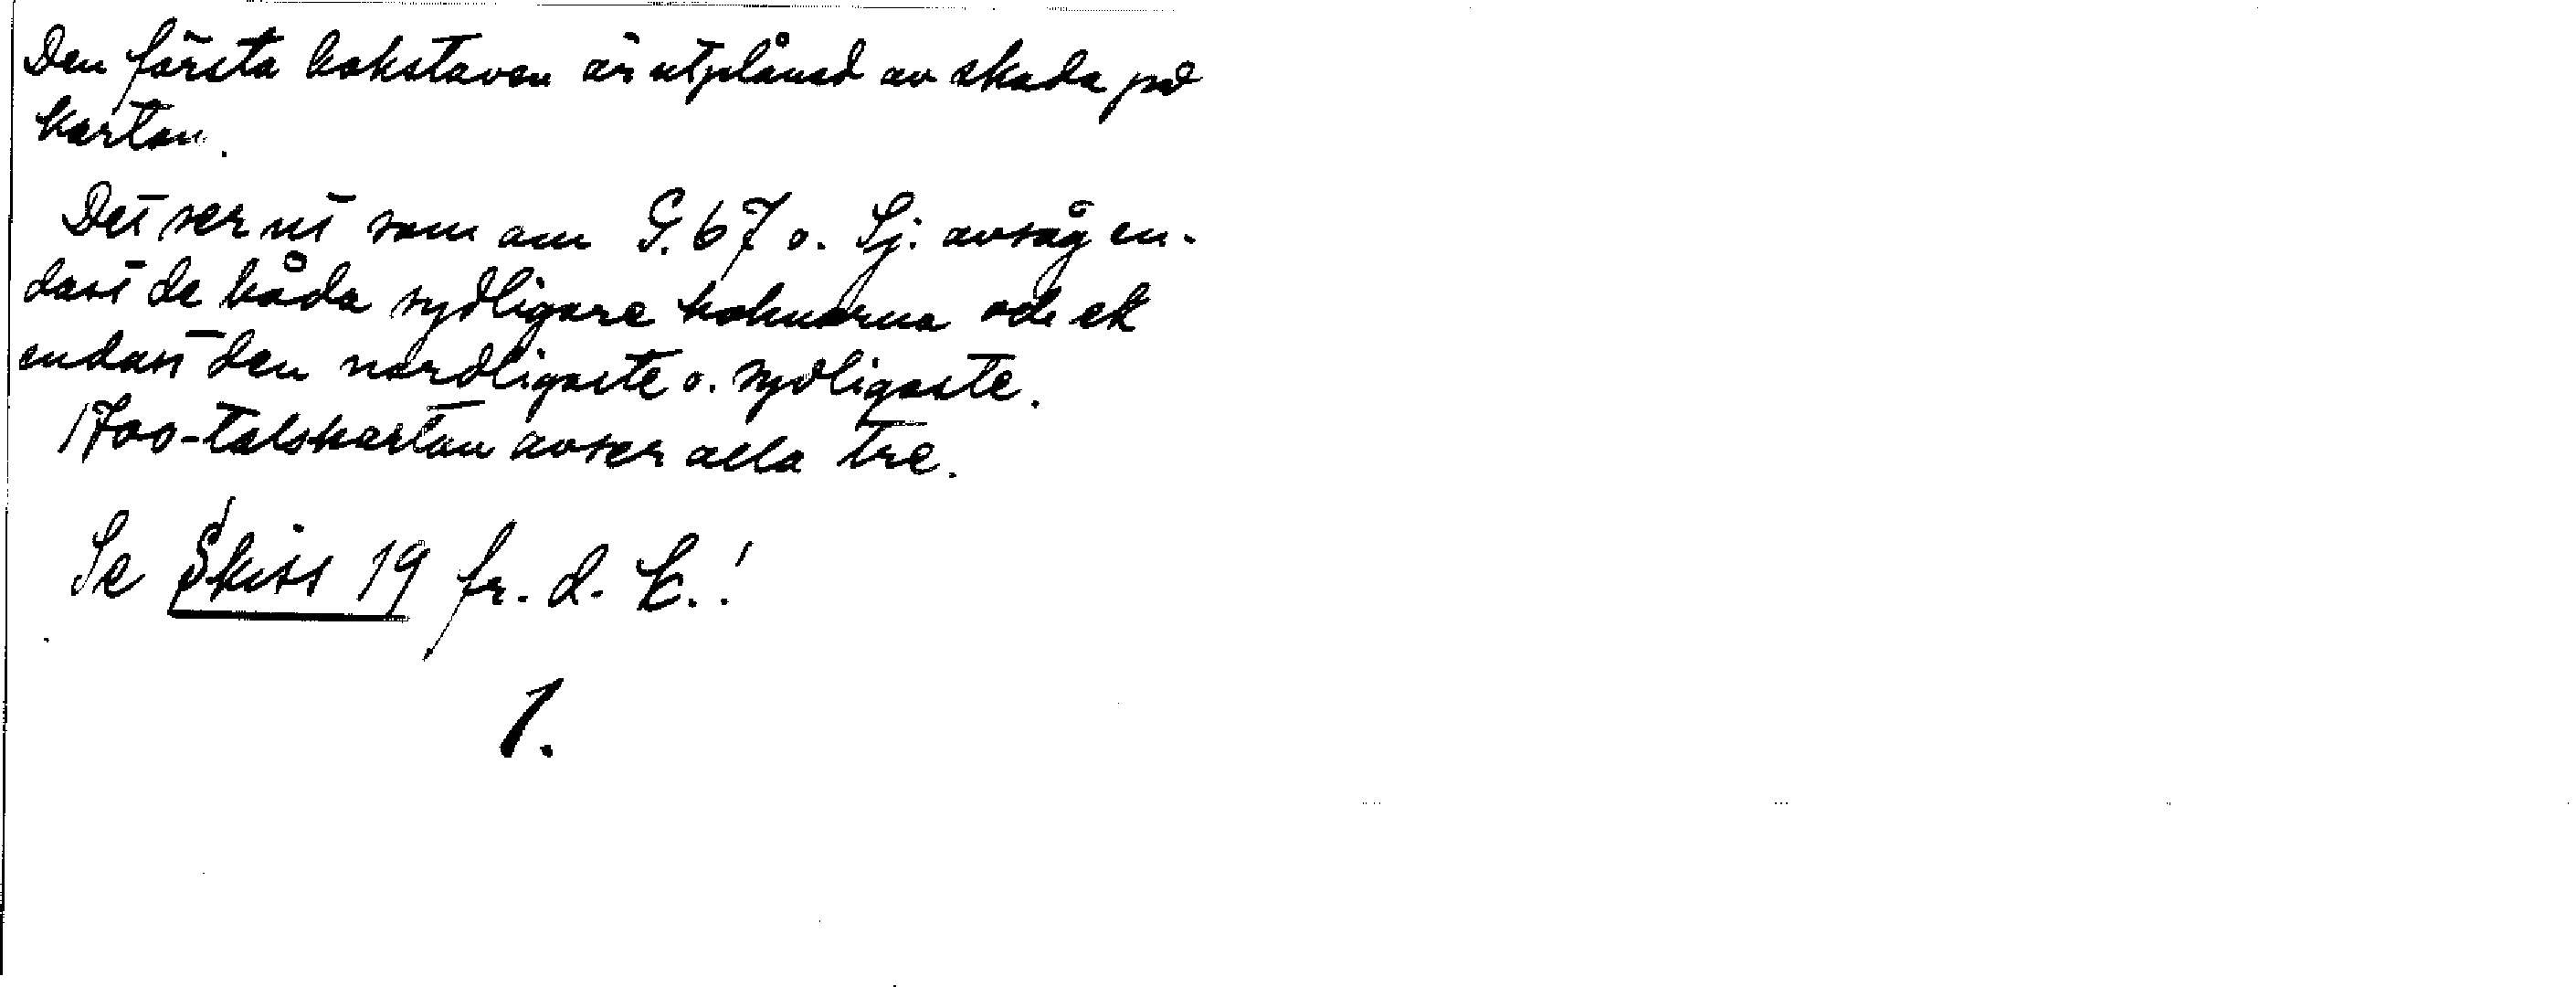 Den första bokstaven är utplånad av skada på
kartan.
Det ser ut som om G. 67 o. Sj. avsåg en-
dast de båda sydligare kohuarna och ek
endast den nordligaste o. sydligaste.
1700-talskartan avser alla tre.
Se Skiss 19 fr. d. k.!
1.